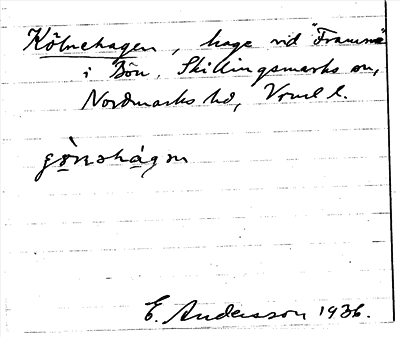 Kölnehagen, hage vid "Framnäs"
i Bön, Skillingsmarks sn,
Nordmarks hd, Vrml l.
gònshágen
E. Andersson 1936.